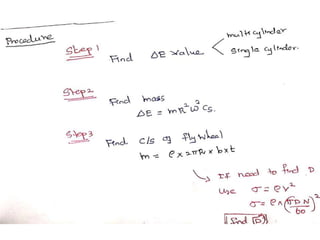 Procedure
Step 1
Find ΔE value
multi cylinder
Single cylinder.
Step2
Find mass
ΔE = mR²ω²Cs.
Step3
Find c/s of flywheel
m = ρ × 2πR × b × t
If need to find D
Use σ = ρv²
σ = ρ × (πDN/60)²
find D